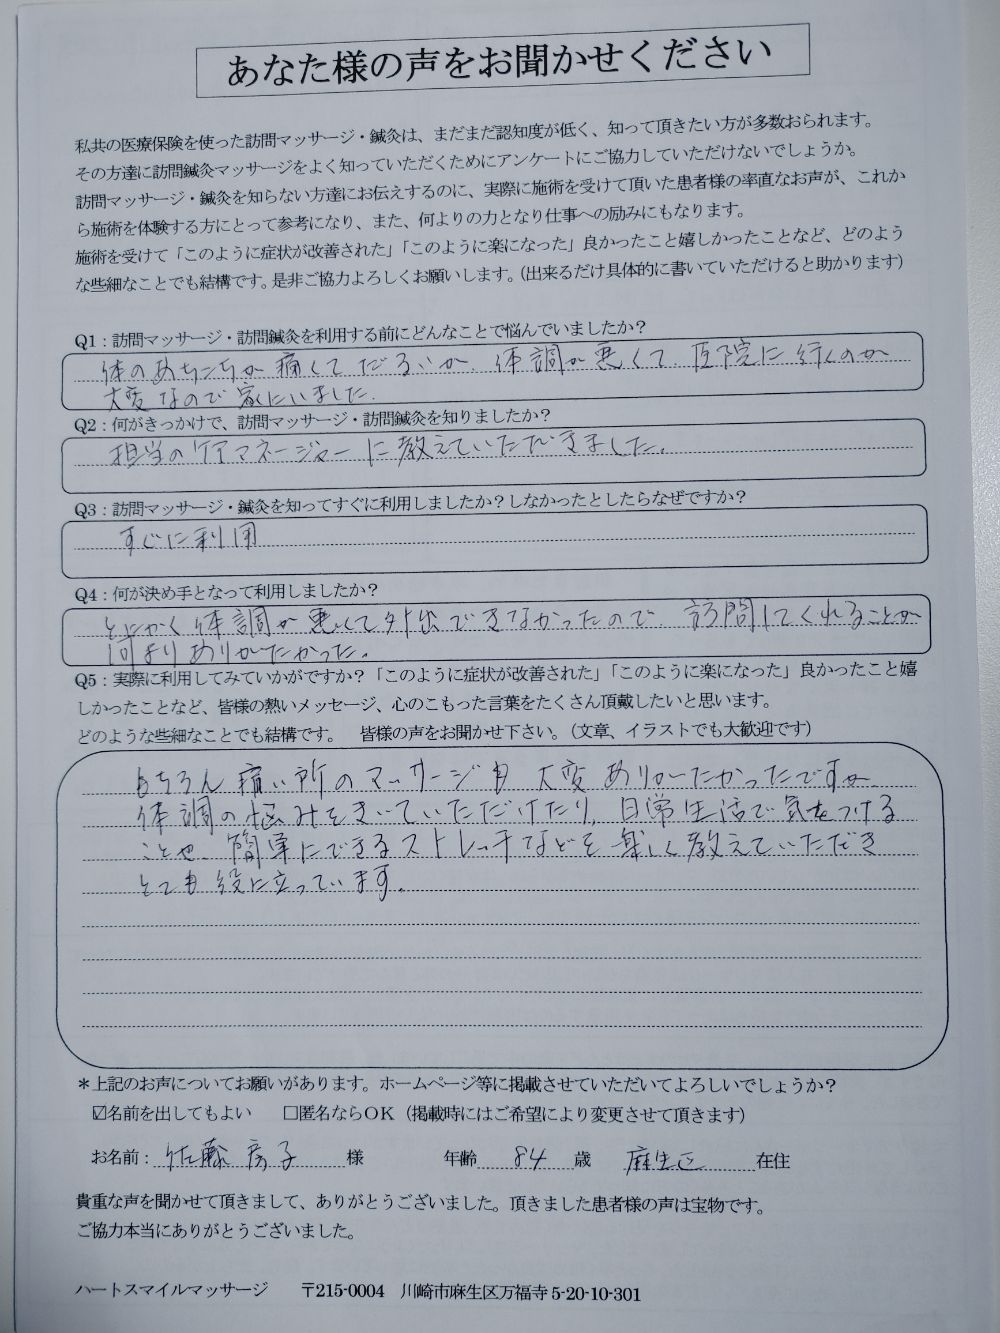 あなた様の声をお聞かせください
私共の医療保険を使った訪問マッサージ・鍼灸は、まだまだ認知度が低く、知って頂きたい方が多数おられます。
その方達に訪問鍼灸マッサージをよく知っていただくためにアンケートにご協力していただけないでしょうか。
訪問マッサージ・鍼灸を知らない方達にお伝えするのに、実際に施術を受けて頂いた患者様の率直なお声が、これか
ら施術を体験する方にとって参考になり、また、何よりの力となり仕事への励みにもなります。
施術を受けて「このように症状が改善された」「このように楽になった」良かったこと嬉しかったことなど、どのよう
な些細なことでも結構です。是非ご協力よろしくお願いします。（出来るだけ具体的に書いていただけると助かります）
Q1：訪問マッサージ・訪問鍼灸を利用する前にどんなことで悩んでいましたか？
体のあちこちが痛くてだるいが、体調が悪くて、医院に行くのが
大変なので家にいました。
Q2：何がきっかけで、訪問マッサージ・訪問鍼灸を知りましたか？
担当のケアマネージャーに教えていただきました。
Q3：訪問マッサージ・鍼灸を知ってすぐに利用しましたか？しなかったとしたらなぜですか？
すぐに利用
Q4：何が決め手となって利用しましたか？
とにかく体調が悪くて外出できなかったので、訪問してくれることが
何よりありがたかった。
Q5：実際に利用してみていかがですか？「このように症状が改善された」「このように楽になった」良かったこと嬉
しかったことなど、皆様の熱いメッセージ、心のこもった言葉をたくさん頂戴したいと思います。
どのような些細なことでも結構です。　皆様の声をお聞かせ下さい。（文章、イラストでも大歓迎です）
もちろん痛い所のマッサージも大変ありがたかったですが
体調の悩みをきいていただけたり、日常生活で気をつける
ことや、簡単にできるストレッチなどを楽しく教えていただき
とても役に立っています。
＊上記のお声についてお願いがあります。ホームページ等に掲載させていただいてよろしいでしょうか？
☑名前を出してもよい　□匿名ならOK（掲載時にはご希望により変更させて頂きます）
お名前：佐藤房子 様　年齢 84 歳　麻生区 在住
貴重な声を聞かせて頂きまして、ありがとうございました。頂きました患者様の声は宝物です。
ご協力本当にありがとうございました。
ハートスマイルマッサージ　〒215-0004　川崎市麻生区万福寺5-20-10-301